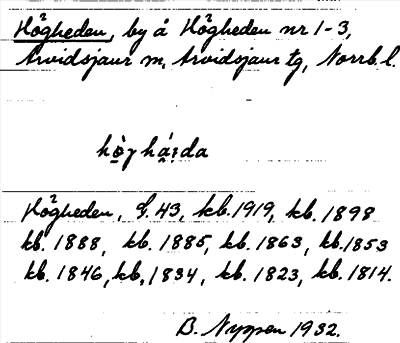 Högheden, by å Högheden nr 1-3,
Arvidsjaur sn, Arvidsjaur tg, Norrb. l.
Högheden, g. 43, kb. 1919, kb. 1898
kb. 1888, kb. 1885, kb. 1863, kb. 1853
kb. 1846, kb. 1834, kb. 1823, kb. 1814.
B. Nyppen 1932.